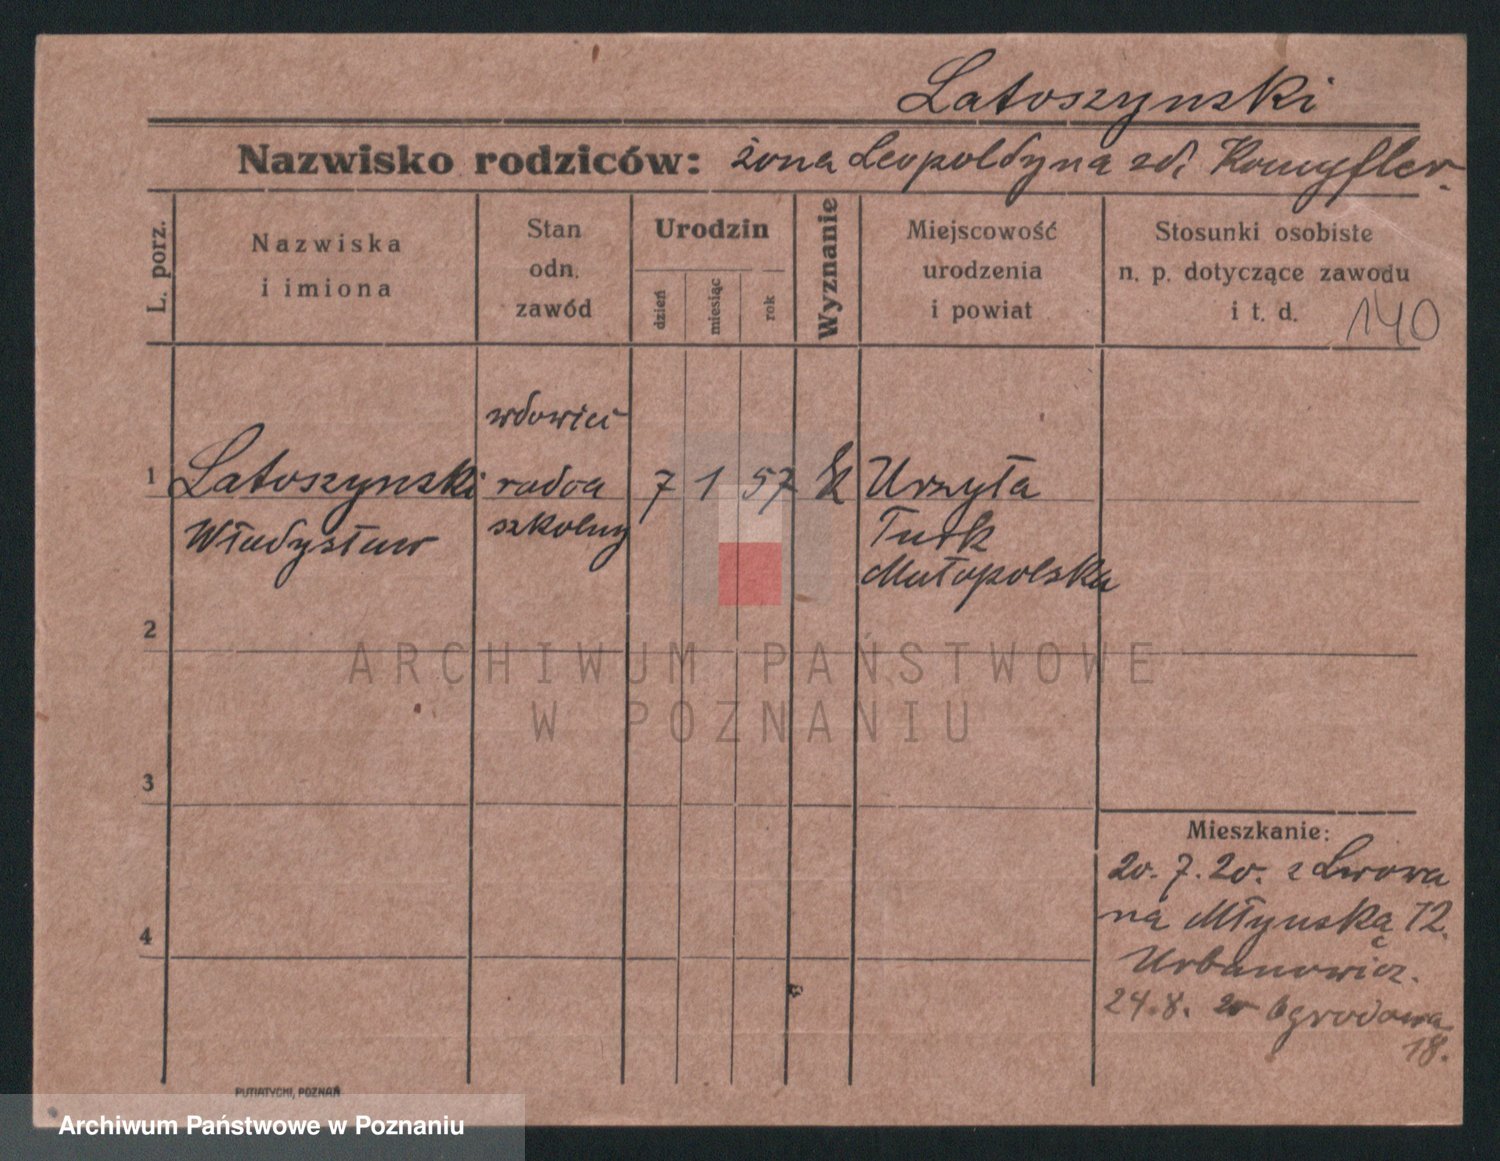 Latoszynski
Nazwisko rodziców: żona Leopoldyna
L. porz.
Nazwiska
i imiona
Stan
odn.
zawód
Urodzin
dzień
miesiąc
rok
Wyznanie
Miejscowość
urodzenia
i powiat
Stosunki osobiste
n. p. dotyczące zawodu
i t. d.
140
wdowiec
1 Latoszynski radca 7 1 57
Władysław szkolny
Turk
Małopolska
2
ARCHIWUM PAŃSTWOWE
W POZNANIU
3
Mieszkanie:
20. 7. 20. z Lwowa
na Młyńską 12.
4
Urbanowicz.
24. 8. 20 Ogrodowa
18.
PUTIATYCKI, POZNAŃ
Archiwum Państwowe w Poznaniu